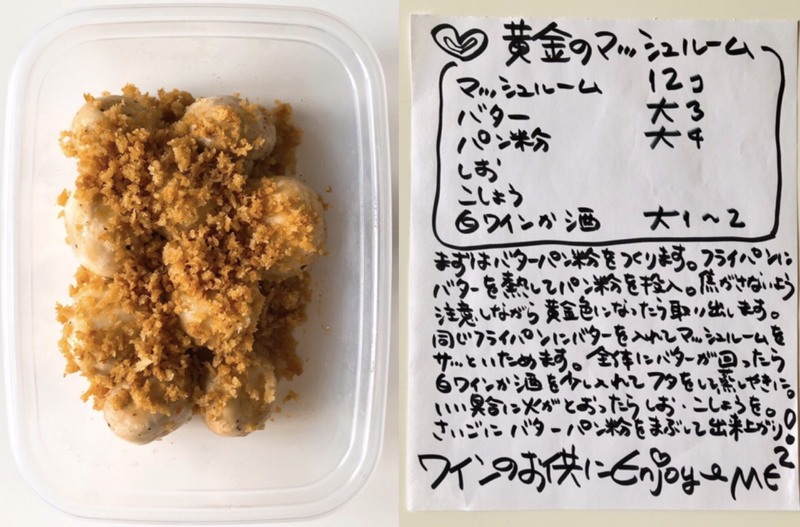 黄金のマッシュルーム
マッシュルーム 12コ
バター 大3
パン粉 大4
しお
こしょう
白ワインか酒 大1～2
まずはバターパン粉をつくります。フライパンに
バターを熱してパン粉を投入。焦がさないよう
注意しながら黄金色になったら取り出します。
同じフライパンにバターを入れてマッシュルームを
サッといためます。全体にバターが回ったら
白ワインか酒を少し入れてフタをして蒸しやきに。
いい具合に火がとおったらしお・こしょうを。
さいごにバターパン粉をまぶして出来上がり
ワインのお供にEnjoy